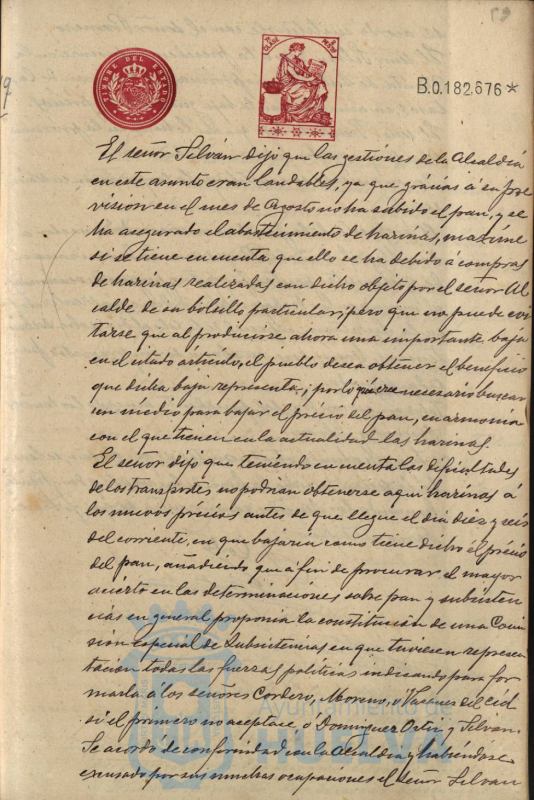 59
TIMBRE DEL ESTADO
CLASE
PESOS
B.0.182.676*
El señor Silván dijo que las gestiones de la Alcaldía
en este asunto eran laudables, ya que grácias á su pre
visión en el mes de Agosto no ha subido el pan, y se
ha asegurado el abastecimiento de harinas, maxime
si se tiene en cuenta que ello se ha debido á compras
de harinas realizadas con dicho objeto por el señor Al
calde de su bolsillo particular; pero que no puede evi
tarse que al producirse ahora una importante baja
en el citado articulo, el pueblo desea obtener el beneficio
que dicha baja representa, por lo que cree necesario buscar
un medio para bajar el precio del pan, en armonia
con el que tienen en la actualidad las harinas.
El señor dijo que teniendo en cuenta las dificultades
de los transportes no podrian obtenerse aqui harinas á
los nuevos précios antes de que llegue el dia diez y seis
del corriente, en que bajaria como tiene dicho el précio
del pan, añadiendo que á fin de procurar el mayor
acierto en las determinaciones sobre pan y subsisten
cias en general proponia la constitución de una Comi
sión especial de Subsistencias en que tuviesen represen
tacion todas las fuerzas politicas indicando para for
marla á los señores Cordero, Moreno, ó Vazquez del Cid
si el primero no aceptase, ó Dominguez Ortiz y Silvan.
Se acordó de conformidad con la Alcaldia y habiéndose
excusado por sus muchas ocupaciones el señor Silvan
Ayuntamiento de
HUELVA